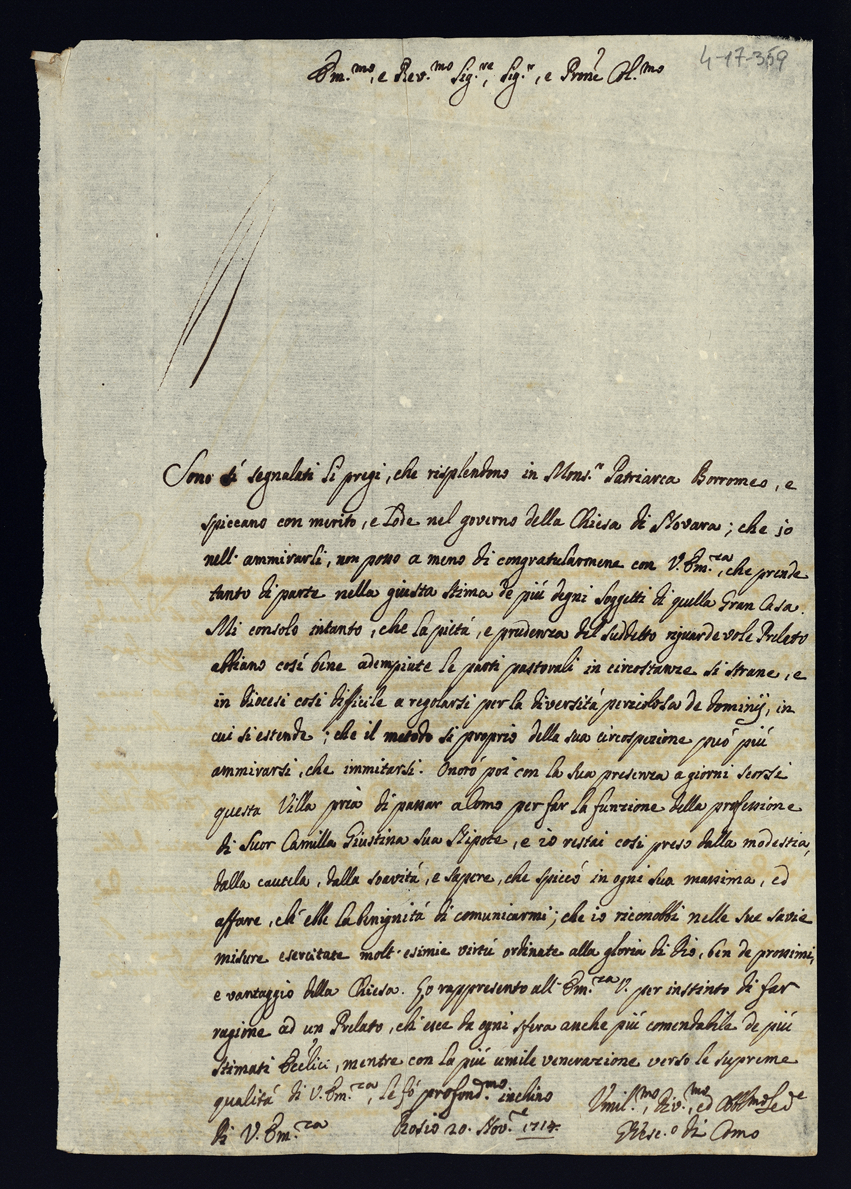 4-17-359
Em.mo, e Rev.mo Sig.re, Sig.r, e Prone Col.mo
Sono sí segnalati li pregi, che risplendono in Mons.r Patriarca Borromeo, e
spiccano con merito, e Lode nel governo della Chiesa di Novara; che io
nell' ammirarli, non posso a meno di congratularmene con V. Em.za, che prende
tanto di parte nella giusta stima de piú degni soggetti di quella Gran Casa.
Mi consolo intanto, che la pietá, e prudenza del suddetto riguardevole Prelato
abbiano cosí bene adempiute le parti pastorali in circostanze si strane, e
in diocesi cosi difficile a regolarsi per la diversitá perziolosa de dominij, in
cui si estende; che il metodo si proprio della sua circospezione puó piú
ammirarsi, che immitarsi. Onoró poi con la sua presenza a giorni scorsi
questa Villa pria di passar a Como per far la funzione della professione
di Suor Camilla Giustina sua Nipote, e io restai cosi preso dalla modestia,
dalla cautela, dalla soavitá, e sapere, che spiccó in ogni sua massima, ed
affare, ch' ebbe la benignitá di comunicarmi; che io riconobbi nelle sue savie
misure esercitate molt' esimie virtú ordinate alla gloria di Dio, ben de prossimi,
e vantaggio della Chiesa. Lo rappresento all' Em.za V. per instinto di far
ragione ad un Prelato, ch' esce da ogni sfera anche piú comendabile de piú
stimati Ecclici, mentre con la piú umile venerazione verso le supreme
qualitá di V. Em.za, le fó profond.mo inchino
di V. Em.za Rosio 20. Nov.e 1714.
Umil.mo, Div.mo, ed Obl.mo Se.e
Il Vesc.o di Como